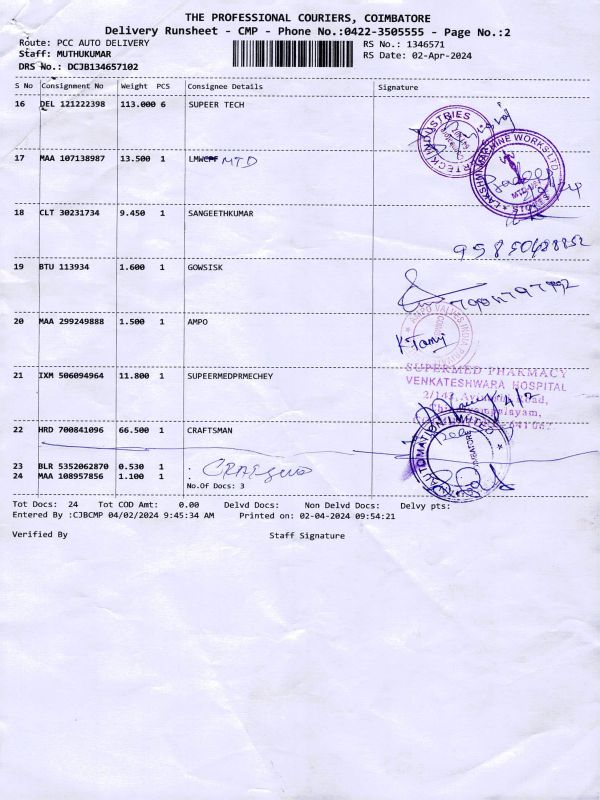 THE PROFESSIONAL COURIERS, COIMBATORE
Delivery Runsheet - CMP - Phone No.:0422-3505555 - Page No.:2
Route: PCC AUTO DELIVERY
RS No.: 1346571
Staff: MUTHUKUMAR
RS Date: 02-Apr-2024
DRS No.: DCJB134657102
S No Consignment No Weight PCS Consignee Details Signature
16 DEL 121222398 113.000 6 SUPEER TECH
INDUSTRIES
LAKSHMI MACHINE WORKS LTD
17 MAA 107138987 13.500 1 LMWCPF MTD
18 CLT 30231734 9.450 1 SANGEETHKUMAR
19 BTU 113934 1.600 1 GOWSISK
20 MAA 299249888 1.500 1 AMPO
AMPO VALVES INDIA
21 IXM 506094964 11.800 1 SUPEERMEDPRMECHEY
SUPERMED PHARMACY
VENKATESHWARA HOSPITAL
22 HRD 700841096 66.500 1 CRAFTSMAN
AUTOMATION LIMITED
23 BLR 5352062870 0.530 1 :
24 MAA 108957856 1.100 1 :
No.Of Docs: 3
Tot Docs: 24 Tot COD Amt: 0.00 Delvd Docs: Non Delvd Docs: Delvy pts:
Entered By :CJBCMP 04/02/2024 9:45:34 AM Printed on: 02-04-2024 09:54:21
Verified By Staff Signature